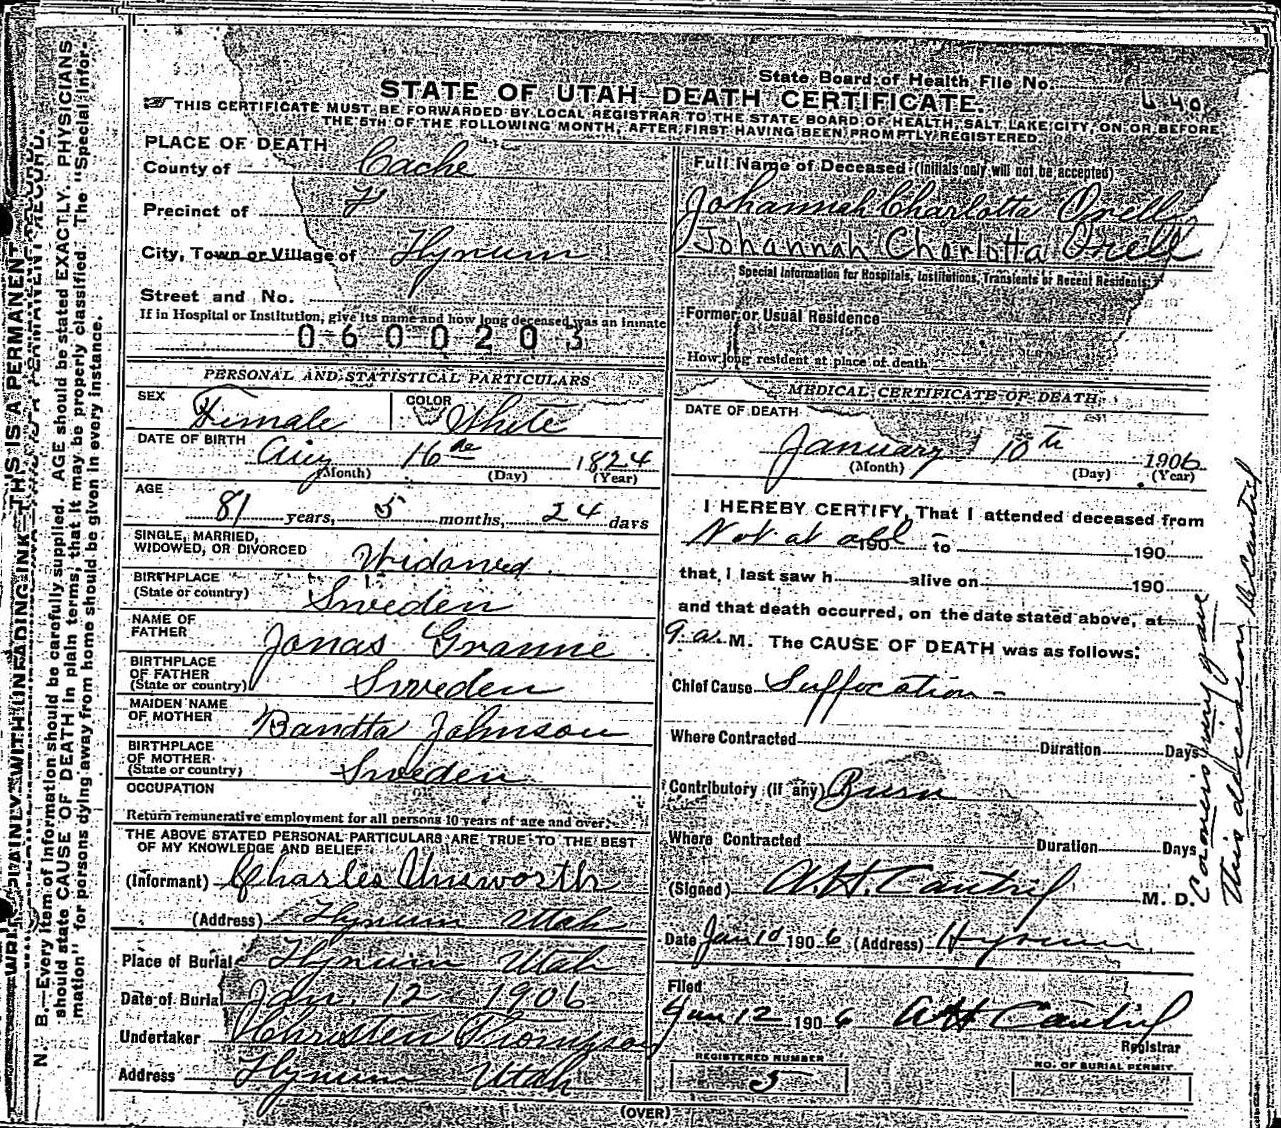 State Board of Health File No.
STATE OF UTAH—DEATH CERTIFICATE.
THIS CERTIFICATE MUST BE FORWARDED BY LOCAL REGISTRAR TO THE STATE BOARD OF HEALTH, SALT LAKE CITY, ON OR BEFORE
THE 5TH OF THE FOLLOWING MONTH, AFTER FIRST HAVING BEEN PROMPTLY REGISTERED.
PLACE OF DEATH
County of Cache
Precinct of
City, Town or Village of Hyrum
Street and No.
If in Hospital or Institution, give its name and how long deceased was an inmate
0600203
Full Name of Deceased (Initials only will not be accepted)
Johannah Charlotta
Johannah Charlotta Orell
Special Information for Hospitals, Institutions, Transients or Recent Residents.
Former or Usual Residence
How long resident at place of death
PERSONAL AND STATISTICAL PARTICULARS
SEX Female COLOR White
DATE OF BIRTH Aug 16 1824
(Month) (Day) (Year)
AGE
81 years, 5 months, 24 days
SINGLE, MARRIED,
WIDOWED, OR DIVORCED Widowed
BIRTHPLACE
(State or country) Sweden
NAME OF
FATHER Jonas Granne
BIRTHPLACE
OF FATHER
(State or country) Sweden
MAIDEN NAME
OF MOTHER Bandta Johnson
BIRTHPLACE
OF MOTHER
(State or country) Sweden
OCCUPATION
Return remunerative employment for all persons 10 years of age and over.
THE ABOVE STATED PERSONAL PARTICULARS ARE TRUE TO THE BEST
OF MY KNOWLEDGE AND BELIEF
(Informant) Charles Unsworth
(Address) Hyrum Utah
Place of Burial Hyrum Utah
Date of Burial Jan. 12 1906
Undertaker Christen Thompson
Address Hyrum Utah
MEDICAL CERTIFICATE OF DEATH
DATE OF DEATH
January 10th 1906
(Month) (Day) (Year)
I HEREBY CERTIFY, That I attended deceased from
Not at all 190 to 190
that I last saw h alive on 190
and that death occurred, on the date stated above, at
9 a. M. The CAUSE OF DEATH was as follows:
Chief Cause Suffocation -
Where Contracted Duration Days
Contributory (if any) Burn
Where Contracted Duration Days
(Signed) A.H. Cantril M. D.
Date Jan 10 1906 (Address) Hyrum
Filed
Jan 12 1906 AH Cantril
Registrar
REGISTERED NUMBER
5
NO. OF BURIAL PERMIT
(OVER)
Coroners jury gave
this decision
N. B.—Every item of information should be carefully supplied. AGE should be stated EXACTLY. PHYSICIANS
should state CAUSE OF DEATH in plain terms, that it may be properly classified. The "Special Infor-
mation" for persons dying away from home should be given in every instance.